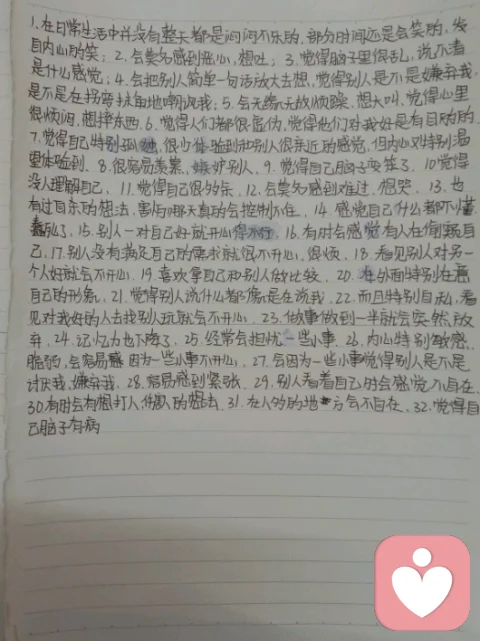 1.在日常生活中并没有整天都是闷闷不乐的,部分时间还是会笑的,发
自内心的笑;2.会莫名感到恶心,想吐;3.觉得脑子里很乱,说不清
是什么感觉;4.会把别人简单一句话放大去想,觉得别人是不是嫌弃我,
是不是在拐弯抹角地嘲讽我;5.会无缘无故烦躁,想大叫,觉得心里
很烦闷,想摔东西.6.觉得人们都很虚伪,觉得他们对我好是有目的的.
7.觉得自己特别孤独,很少体验到和别人很亲近的感觉,但内心又特别渴
望体验到.8.很容易羡慕,嫉妒别人.9.觉得自己脑子变笨了.10觉得
没人理解自己,11.觉得自己很多余.12.会莫名感到难过,想哭.13.也
有过自杀的想法,害怕哪天真的会控制不住.14.感觉自己什么都不懂
15.别人一对自己好就开心得不行.16.有时会感觉有人在伤害自
己,17.别人没有满足自己的需求就很不开心,很烦.18.看见别人对另一
个人好就会不开心.19.喜欢拿自己和别人做比较.20.在外面特别在意
自己的形象.21.觉得别人说什么都像是在说我.22.而且特别自私,看
见对我好的人去找别人玩就会不开心.23.做事做到一半就会突然放
弃.24.记忆力也下降了.25.经常会担忧一些小事.26.内心特别敏感
脆弱,会容易感因为一些小事不开心,27.会因为一些小事觉得别人是不是
讨厌我,嫌弃我.28.容易感到紧张.29.别人看着自己时会感觉不自在.
30.有时会有想打人,伤人的想法.31.在人多的地方会不自在.32.觉得自
己脑子有病